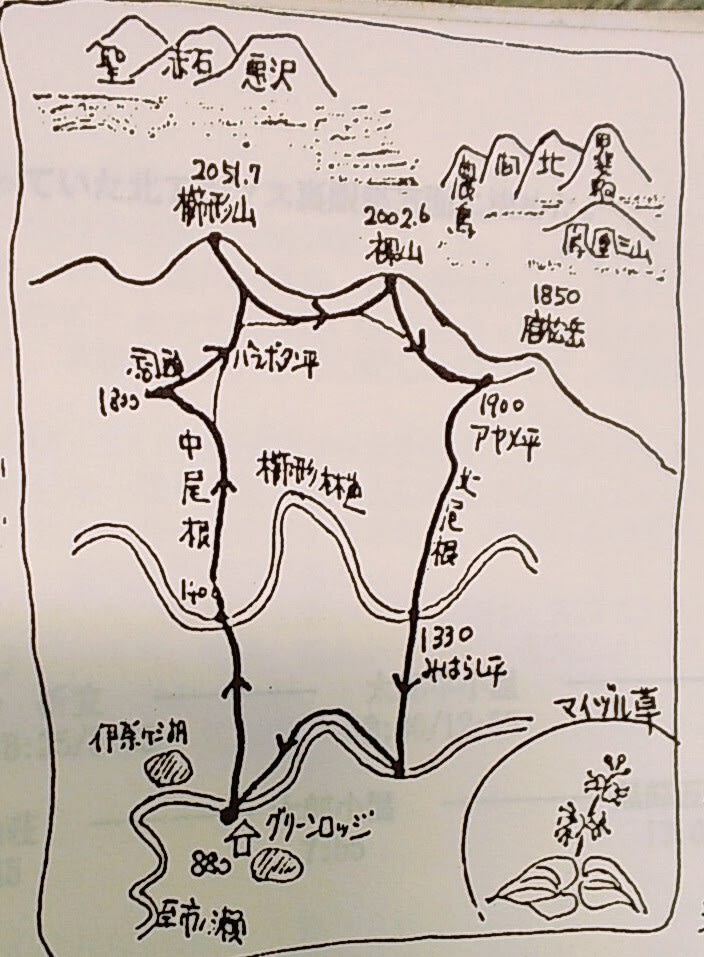 聖 赤石 悪沢
間 北 甲斐駒
鳳凰三山
2051.7
櫛形山
2002.6
裸山
1850
唐松岳
バラボタン平
1800
1900
アヤメ平
中尾根
櫛形林道
北尾根
1400
1330
みはらし平
マイヅル草
伊奈ケ湖
グリーンロッジ
880
至市ノ瀬